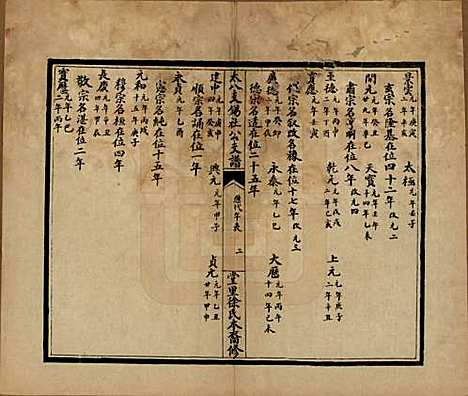 景雲 元年庚戌 二年辛亥
太極 元年壬子
玄宗名隆基在位四十二年
開元 元年癸丑 廿九年辛巳
天寶 元年壬午 十四年乙未
肅宗名亨在位八年 改元四
至德 元年丙申 二年丁酉
乾元 元年戊戌 二年己亥
上元 元年庚子 二年辛丑
寶應 元年壬寅
代宗名俶改名豫在位十七年 改元三
廣德 元年癸卯 二年甲辰
永泰 元年乙巳
大曆 元年丙午 十四年己未
德宗名适在位二十五年
太八支錫社公支譜
歷代年表
二
堂里徐氏木商修
建中 元年庚申 四年癸亥
興元 元年甲子
貞元 元年乙丑 廿年甲申
順宗名誦在位
永貞 元年乙酉
憲宗名純在位十五年
元和 元年丙戌 十五年庚子
穆宗名恒在位四年
長慶 元年辛丑 四年甲辰
敬宗名湛在位二年
寶歷 元年乙巳 二年丙午